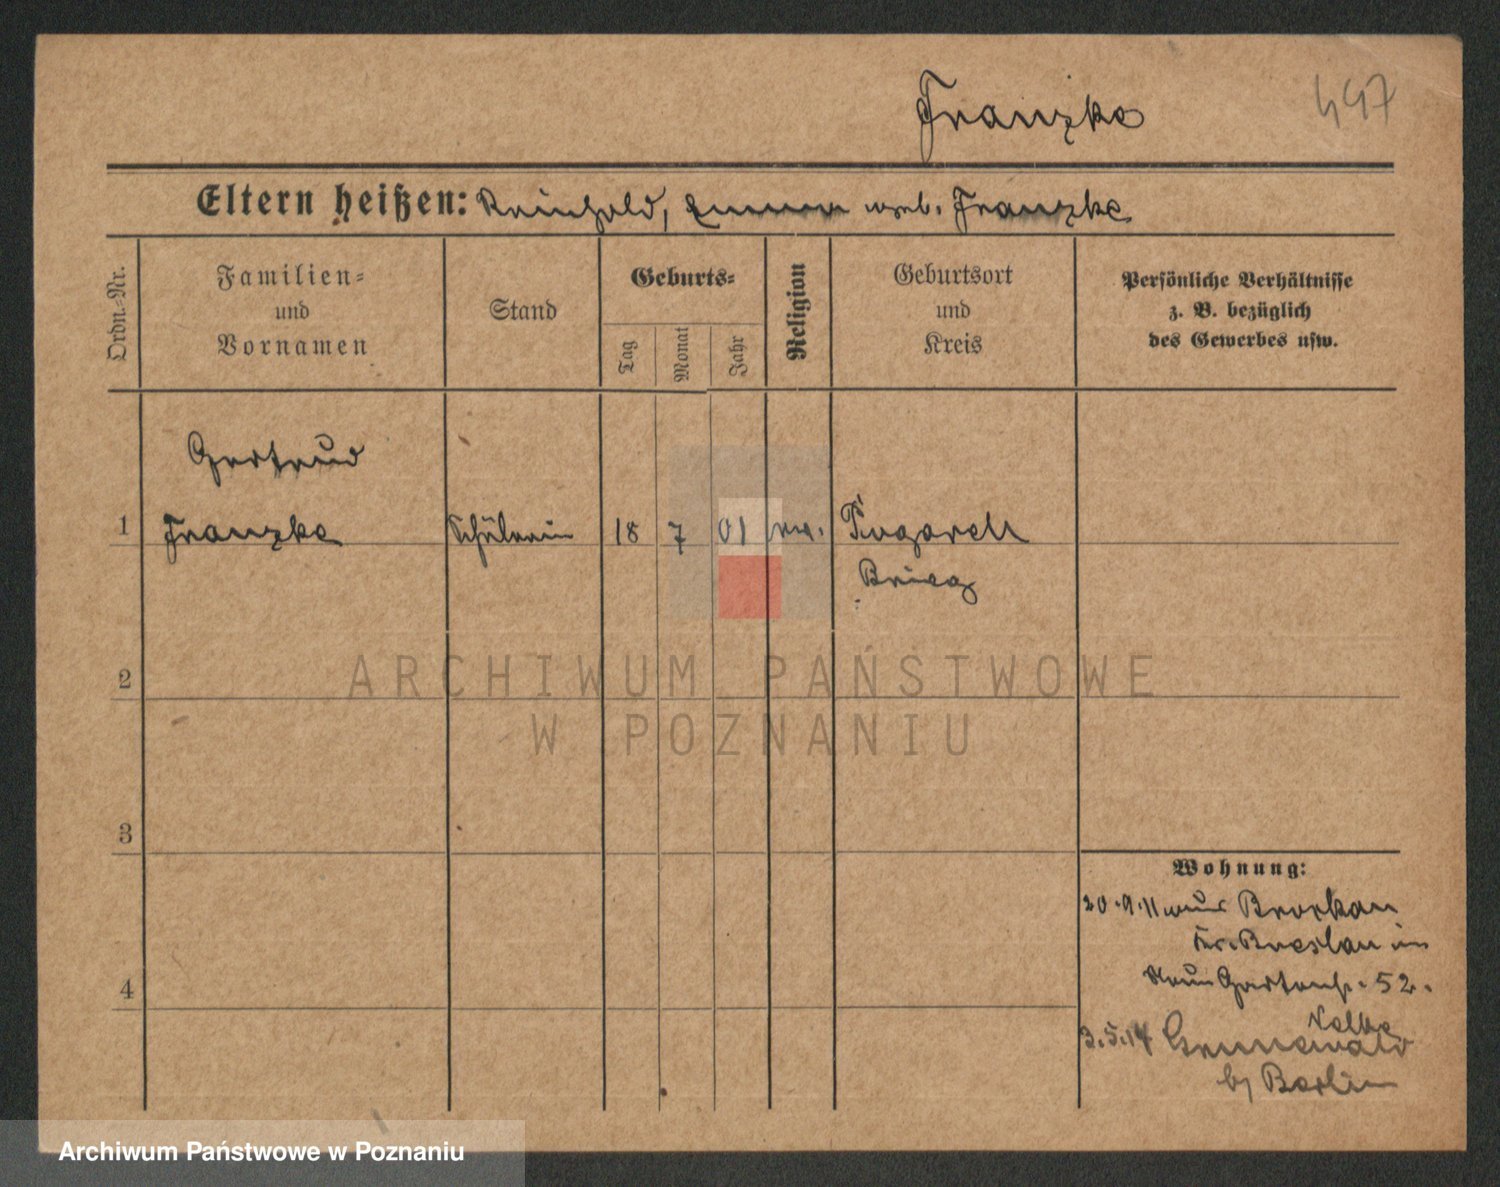 Franzke
447
Eltern heißen: Reinhold, Emma geb. Franzke
Ordn.-Nr.
Familien-
und
Vornamen
Stand
Geburts-
Tag
Monat
Jahr
Religion
Geburtsort
und
Kreis
Persönliche Verhältnisse
z. B. bezüglich
des Gewerbes usw.
Gertrud
1 Franzke Schülerin 18 7 01 ev. Pogarell
Brieg
2
ARCHIWUM PAŃSTWOWE
W POZNANIU
3
Wohnung:
20.9.11 aus Brockau
Kr. Breslau in
Gartenstr. 52.
4
3.5.14 Grunewald
b/ Berlin
Archiwum Państwowe w Poznaniu